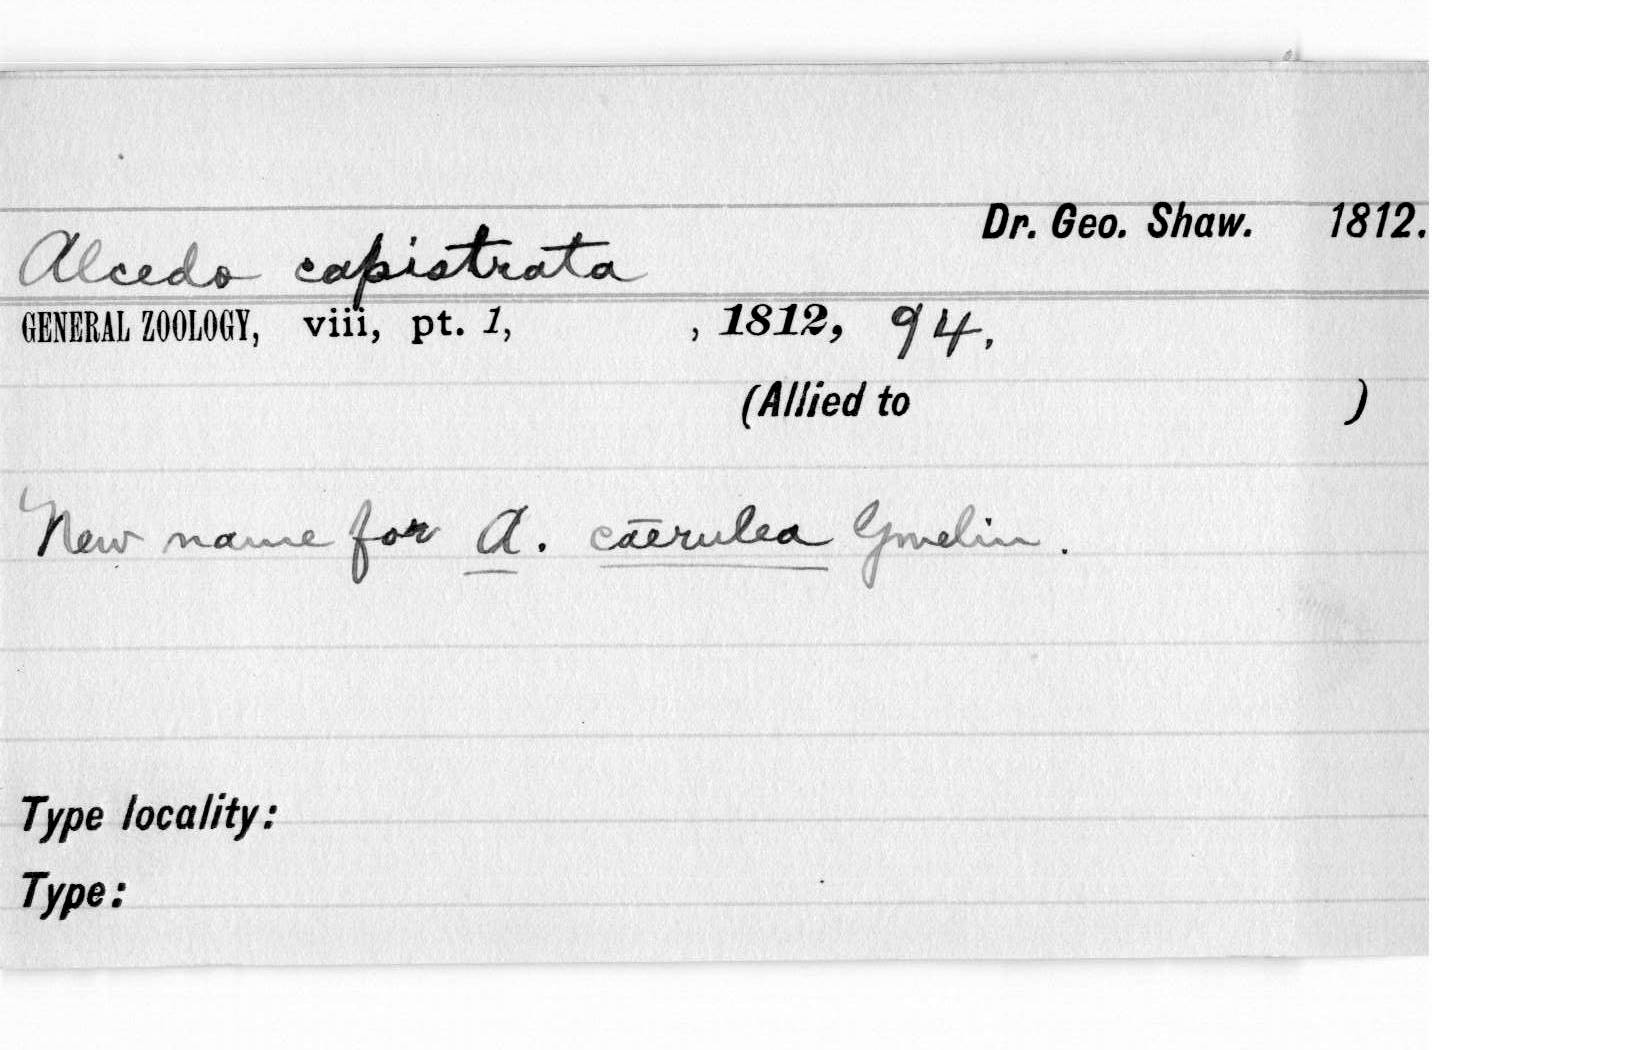 Dr. Geo. Shaw. 1812.
Alcedo capistrata
GENERAL ZOOLOGY, viii, pt. 1, , 1812, 94.
(Allied to )
New name for A. cāerulea Gmelin.
Type locality:
Type: